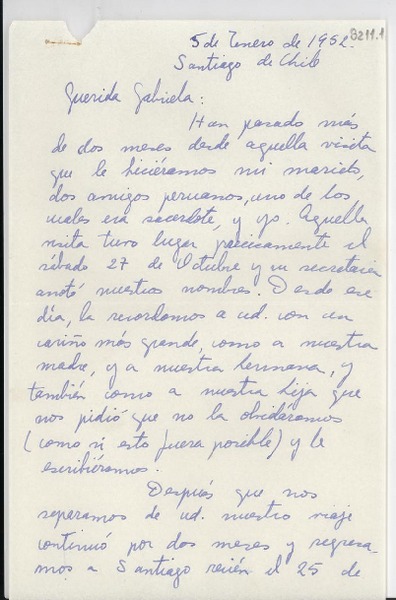 8211.1
5 de Enero de 1952.
Santiago de Chile
Querida Gabriela:
Han pasado más
de dos meses desde aquella visita
que le hiciéramos mi marido,
dos amigos peruanos, uno de los
cuales era sacerdote, y yo. Aquella
visita tuvo lugar precisamente el
sábado 27 de Octubre y su secretaria
anotó nuestros nombres. Desde ese
día, la recordamos a ud. con un
cariño más grande, como a nuestra
madre, y a nuestra hermana, y
también como a nuestra hija que
nos pidió que no la olvidáramos
(como si esto fuera posible) y le
escribiéramos.
Después que nos
separamos de ud. nuestro viaje
continuó por dos meses y regresa-
mos a Santiago recién el 25 de